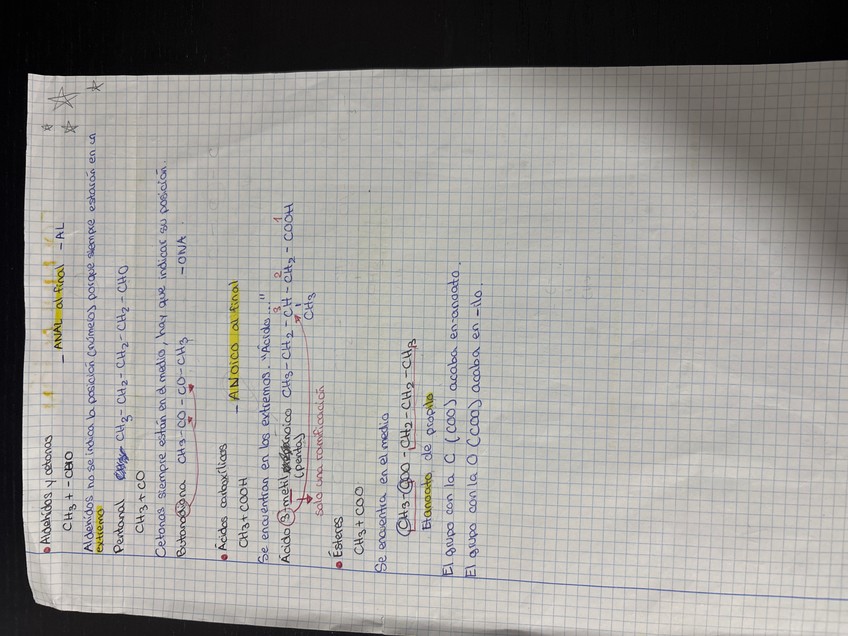 • Aldehidos y cetonas - ANAL al final - AL
CH3 + - CHO
Aldehidos no se indica la posición (números) porque siempre estarán en un
extremo.
Pentanal CH3-CH2-CH2-CH2-CHO
CH3 + CO
Cetonas siempre están en el medio, hay que indicar su posición.
Butanodiona CH3-CO-CO-CH3 -ONA.
• Ácidos carboxílicos - ANOICO al final
CH3 + COOH
Se encuentran en los extremos. "Ácido..."
3 2 1
Ácido 3-metil noico CH3-CH2-CH-CH2-COOH
(penta) CH3
solo una ramificación
• Ésteres
CH3 + COO
Se encuentra en el medio
CH3-COO-CH2-CH2-CH3
Etanoato de propilo
El grupo con la C (COO) acaba en-anoato.
El grupo con la O (COO) acaba en -ilo.